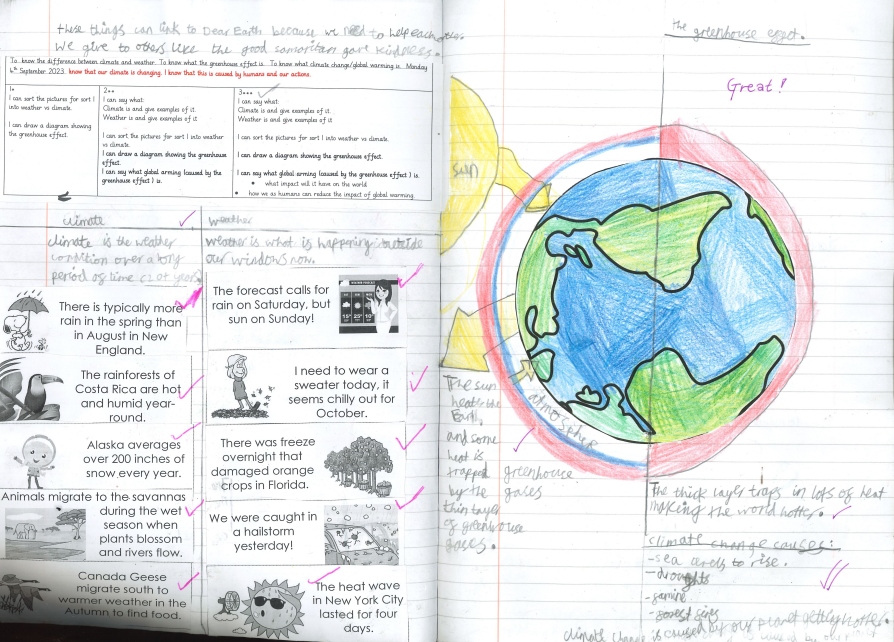 these things can link to Dear Earth because we need to help each other.
We give to others like the good samaritan gave kindness.
To know the difference between climate and weather. To know what the greenhouse effect is. To know what climate change/global warming is. Monday
4th September 2023. know that our climate is changing. I know that this is caused by humans and our actions.
1*
I can sort the pictures for sort 1
into weather vs climate.
I can draw a diagram showing
the greenhouse effect.
2**
I can say what:
Climate is and give examples of it.
Weather is and give examples of it
I can sort the pictures for sort 1 into weather
vs climate.
I can draw a diagram showing the greenhouse
effect.
I can say what global arming (caused by the
greenhouse effect ) is.
3***
I can say what:
Climate is and give examples of it.
Weather is and give examples of it
I can sort the pictures for sort 1 into weather vs climate.
I can draw a diagram showing the greenhouse effect.
I can say what global arming (caused by the greenhouse effect ) is.
• what impact will it have on the world
• how we as humans can reduce the impact of global warming.
climate
climate is the weather
condition over a long
period of time
There is typically more
rain in the spring than
in August in New
England.
The rainforests of
Costa Rica are hot
and humid year-
round.
Alaska averages
over 200 inches of
snow every year.
Animals migrate to the savannas
during the wet
season when
plants blossom
and rivers flow.
Canada Geese
migrate south to
warmer weather in the
Autumn to find food.
weather
weather is what is happening outside
our windows now.
The forecast calls for
rain on Saturday, but
sun on Sunday!
I need to wear a
sweater today, it
seems chilly out for
October.
There was freeze
overnight that
damaged orange
crops in Florida.
We were caught in
a hailstorm
yesterday!
The heat wave
in New York City
lasted for four
days.
the greenhouse effect.
Great!
sun
atmosphere
The sun
heats the
Earth,
and some
heat is
trapped
by the
thin layer
of greenhouse
gases.
greenhouse
gases
The thick layer traps in lots of heat
making the word hotter.
climate change causes:
-sea to rise.
-droughts
-famine
-forest fires
climate change is caused by our planet getting hotter.